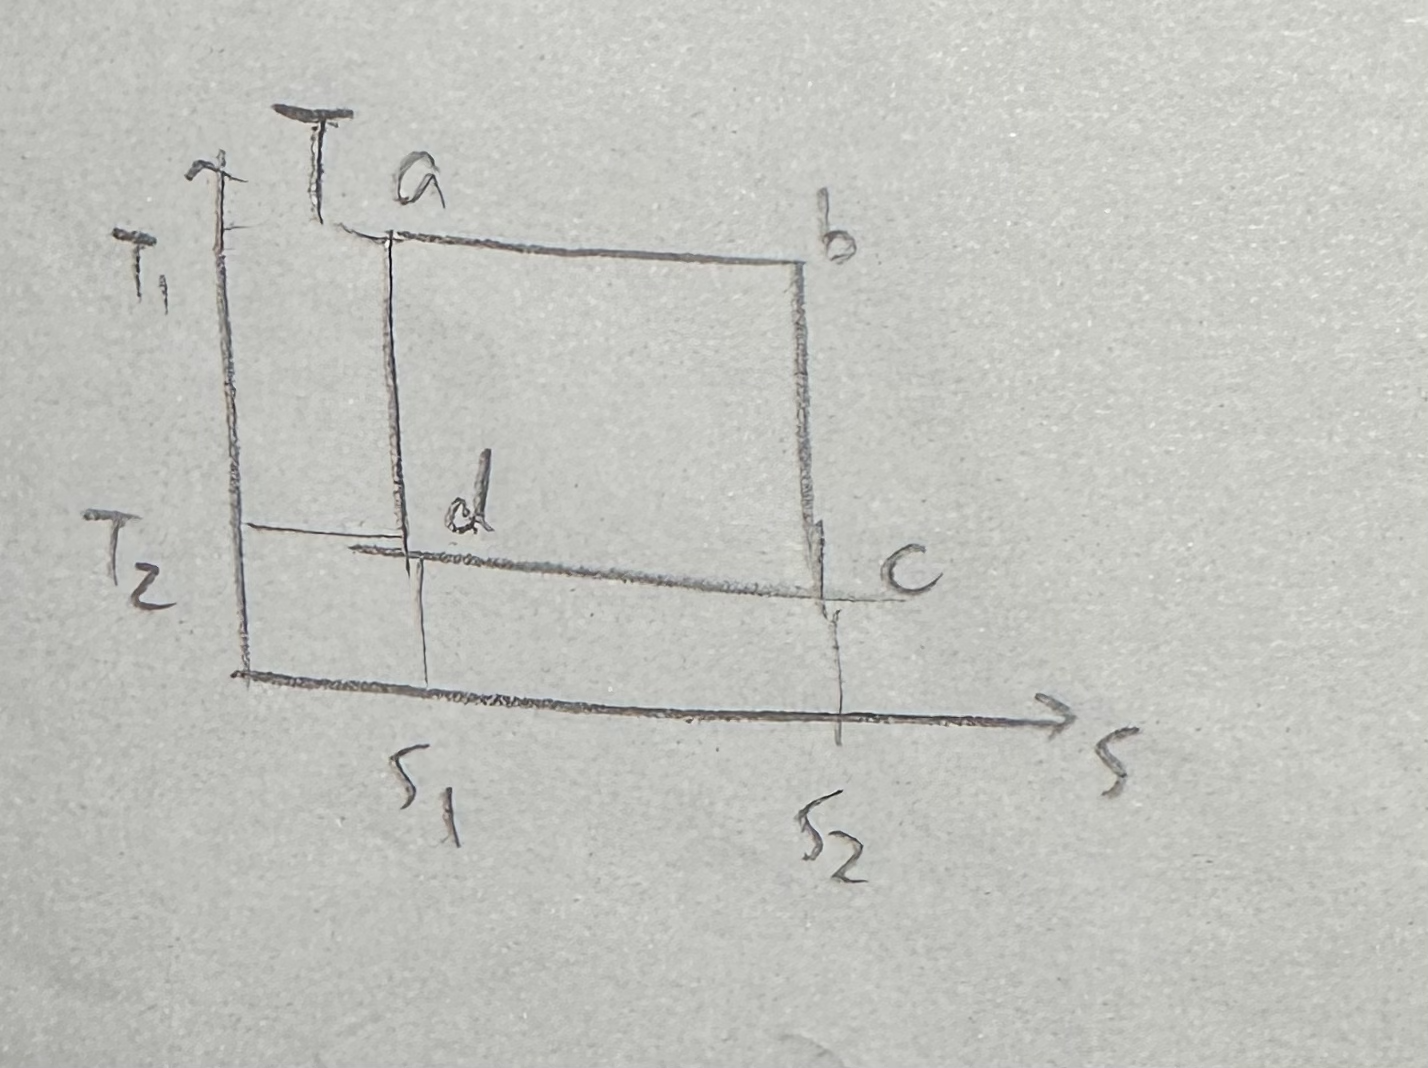 T
a
b
T₁
d
T₂
c
S
S₁
S₂